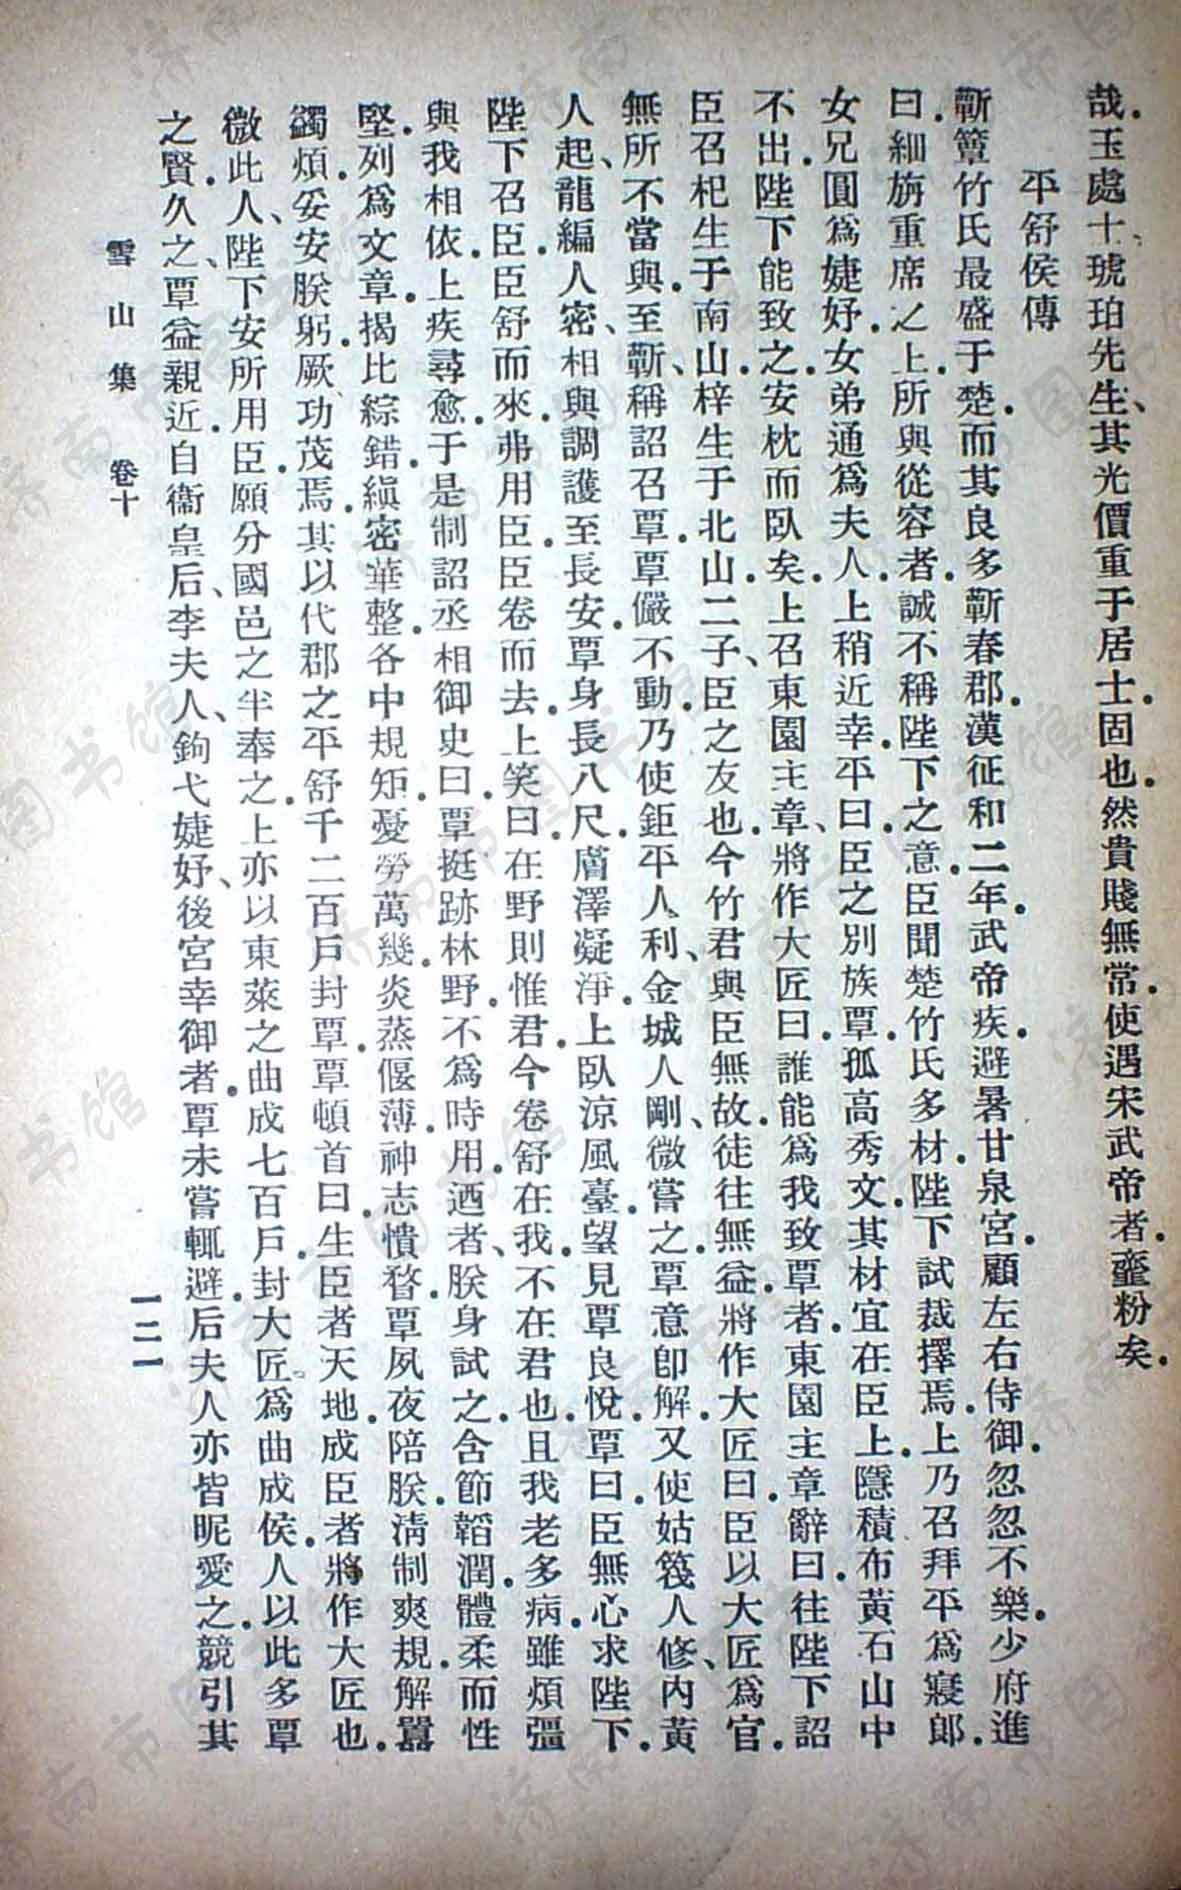 哉。玉處十、琥珀先生、其光價重于居士。固也。然貴賤無常。使遇宋武帝者。虀粉矣。
平舒侯傳
蘄簟竹氏最盛于楚。而其良多蘄春郡。漢征和二年。武帝疾。避暑甘泉宮。顧左右侍御。忽忽不樂。少府進
曰。細旃重席之上。所與從容者。誠不稱陛下之意。臣聞楚竹氏多材。陛下試裁擇焉。上乃召拜平爲寢郎。
女兄圓爲婕妤。女弟通爲夫人。上稍近幸。平曰。臣之別族。覃孤高秀文。其材宜在臣上。隱積布黃石山中
不出。陛下能致之。安枕而臥矣。上召東園主章、將作大匠曰。誰能爲我致覃者。東園主章辭曰。往陛下詔
臣召杞生于南山。梓生于北山。二子、臣之友也。今竹君與臣無故。徒往無益。將作大匠曰。臣以大匠爲官。
無所不當與。至蘄、稱詔召覃。覃儼不動。乃使鉅平人利、金城人剛、微嘗之。覃意卽解。又使姑篾人修、內黃
人起、龍編人密、相與調護至長安。覃身長八尺。膚澤凝淨。上臥涼風臺。望見覃良悅。覃曰。臣無心求陛下。
陛下召臣。臣舒而來。弗用臣。臣卷而去。上笑曰。在野則惟君。今卷舒在我。不在君也。且我老多病。雖煩彊
與我相依。上疾尋愈。于是制詔丞相御史曰。覃挺跡林野。不爲時用。迺者、朕身試之。含節韜潤。體柔而性
堅。列爲文章。揭比綜錯。縝密華整。各中規矩。憂勞萬幾。炎蒸偃薄。神志憒眊。覃夙夜陪朕。清制爽規。解囂
蠲煩。妥安朕躬。厥功茂焉。其以代郡之平舒千二百戶封覃。覃頓首曰。生臣者天地。成臣者將作大匠也。
微此人、陛下安所用臣。願分國邑之半奉之。上亦以東萊之曲成七百戶。封大匠爲曲成侯。人以此多覃
之賢。久之、覃益親近。自衞皇后、李夫人、鉤弋婕妤、後宮幸御者。覃未嘗輒避。后夫人亦皆昵愛之。競引其
雪山集 卷十 一二一